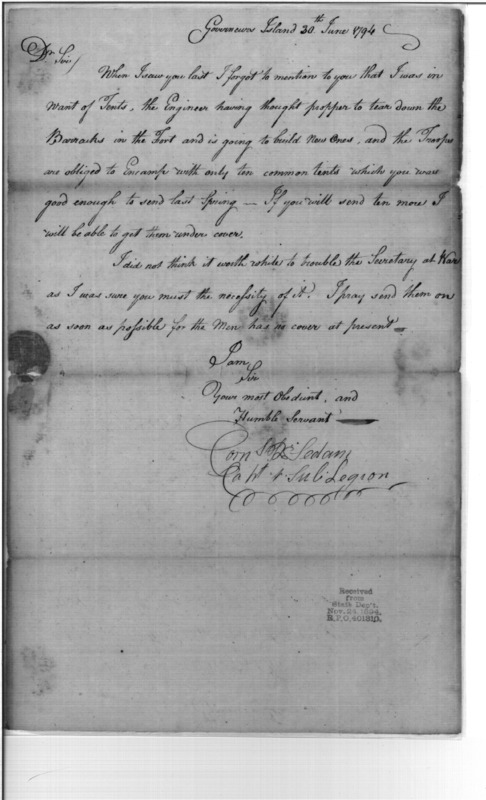 Governers Island 30th June 1794
Dr. Sir/
When I saw you last I forgot to mention to you that I was in
want of Tents, the Engineer having thought propper to tear down the
Barracks in the Fort and is going to build New Ones, and the Troops
are obliged to Encamp with only ten common tents which you was
good enough to send last Spring — If you will send ten more I
will be able to get them under cover.
I did not think it worth while to trouble the Secretary at War
as I was sure you must the necessity of it. I pray send them on
as soon as possible for the Men has no cover at present —
I am
Sir
Your most Obedient, and
Humble Servant —
Corns. Rr. Sedam
Capt. 4 Sub: Legion
Received
from
State Dep't.
Nov. 24, 1894.
R.P.O. 401810.